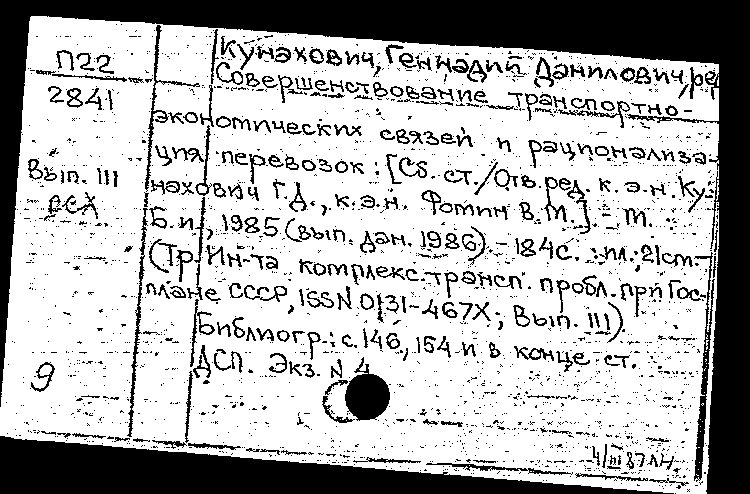 П22
2841
Вып. III
РСХ
9
Кунахович, Геннадий Данилович, ред
Совершенствование транспортно-
экономических связей и рационализа-
ция перевозок: [Сб. ст./Отв. ред. к.э.н. Ку-
нахович Г.Д., к.э.н. Фотин В.М.]. – М. :
Б.и., 1985 (вып. дан. 1986). – 184с. : ил.; 21см. –
(Тр. Ин-та комплекс. трансп. пробл. при Гос-
плане СССР, ISSN 0131-467X; Вып. III).
Библиогр.: с. 146, 154 и в конце ст.
ДСП. Экз. N 4
4/III 87 лн.